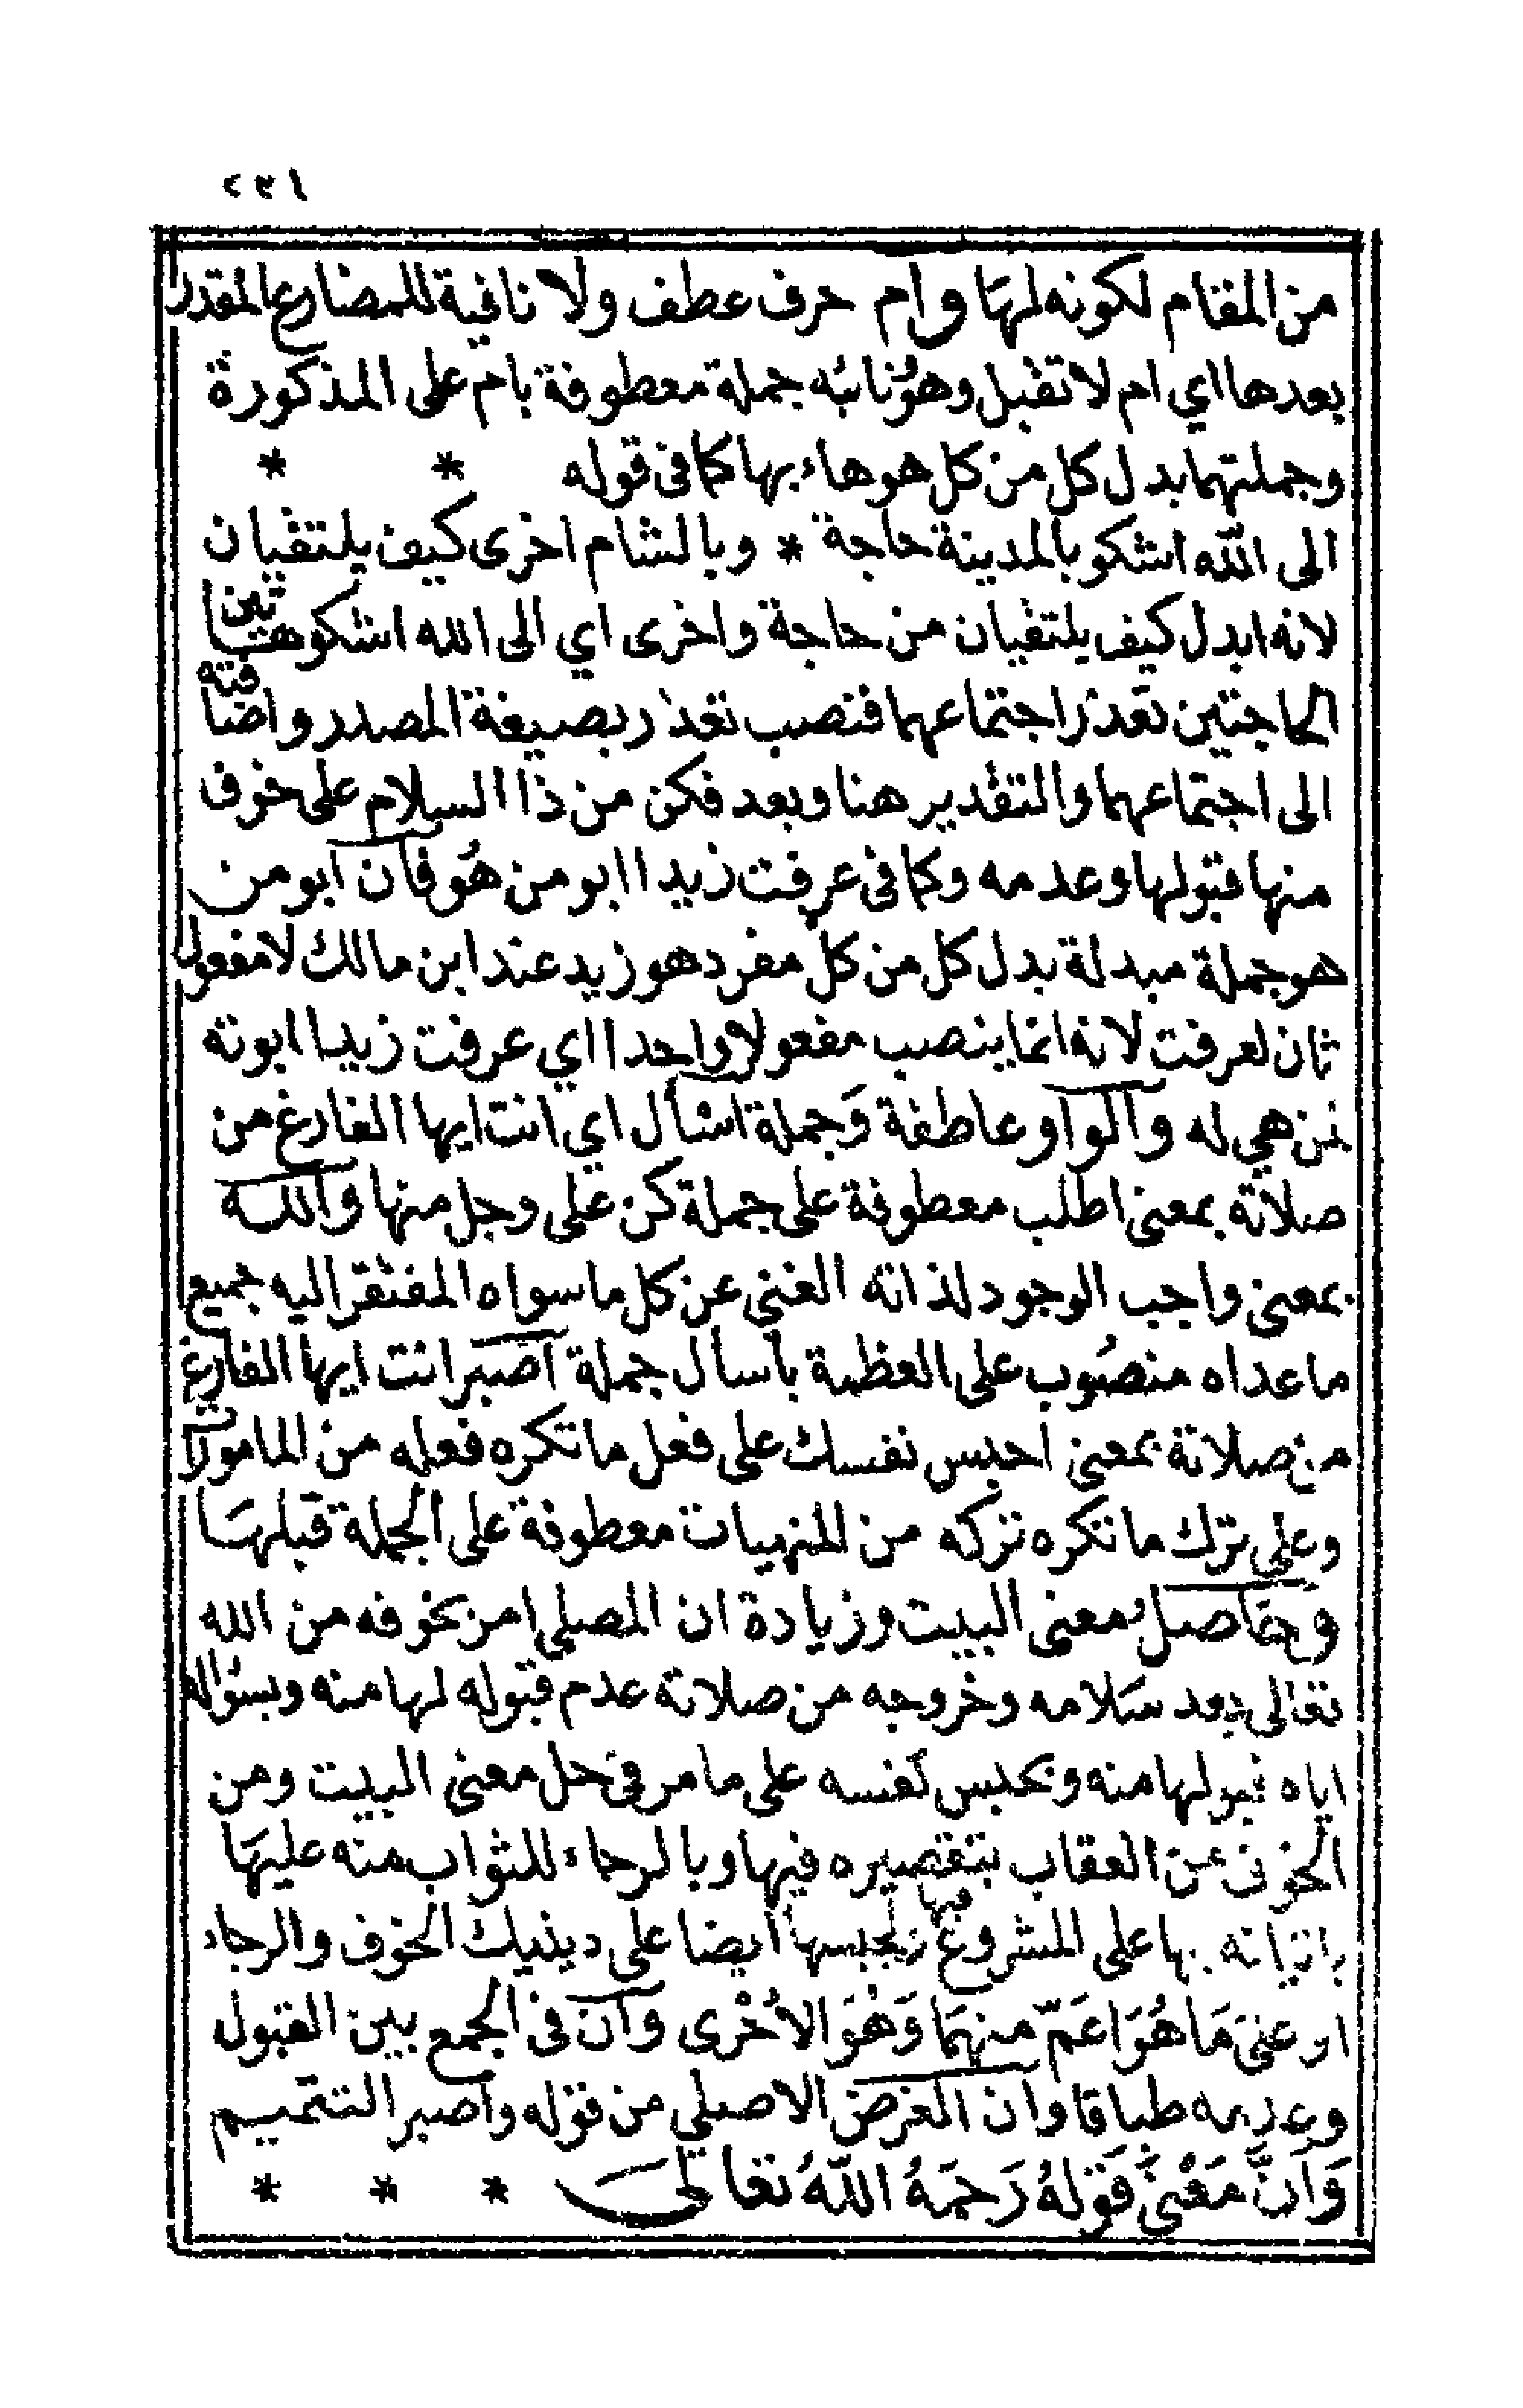 من المقام لكونه لمها وام حرف عطف ولا نافية للمضارع المقدر
بعدها اي ام لا تقبل وهو نائبه جملة معطوفة بام على المذكورة
وجملتهما بدل كل من كل هو هاء بها كما في قوله * *
الى الله اشكو بالمدينة حاجة * وبالشام اخرى كيف يلتقيان
لانه ابدل كيف يلتقيان من حاجة واخرى اي الى الله اشكو هاتين
الحاجتين تعذر اجتماعهما فنصب تعذر بصيغة المصدر واضافته
الى اجتماعهما والتقدير هنا وبعد فكن من ذا السلام على خوف
منها قبولها وعدمه وكما في عرفت زيدا ابو من هو فان ابو من
هو جملة مبدلة بدل كل من كل مفرد هو زيد عند ابن مالك لا مفعول
ثان لعرفت لانه انما ينصب مفعولا واحدا اي عرفت زيدا ابوته
لمن هي له والواو عاطفة وجملة اسأل اي انت ايها الفارغ من
صلاته بمعنى اطلب معطوفة على جملة كن على وجل منها والله
بمعنى واجب الوجود لذاته الغني عن كل ما سواه المفتقر اليه جميع
ما عداه منصوب على العظمة باسأل جملة اصبر انت ايها الفارغ
من صلاته بمعنى احبس نفسك على فعل ما تكره فعله من المامورات
وعلى ترك ما تكره تركه من المنهيات معطوفة على الجملة قبلها
وحاصل معنى البيت وزيادة ان المصلي امر بخوفه من الله
تعالى بعد سلامه وخروجه من صلاته عدم قبوله لها منه وبسؤاله
اياه قبولها منه وبحبس نفسه على ما مر في حل معنى البيت ومن
الخوف عن العقاب بتقصيره فيها وبالرجاء للثواب منه عليها
باتيانه بها على المشروع فيها بحبسها ايضا على دينيك الخوف والرجاء
او عنى ما هو اعم منهما وهو الاخرى وان في الجمع بين القبول
وعدمه طباقا وان الغرض الاصلي من قوله واصبر التتميم
وان معنى قوله رحمه الله تعالى * * *